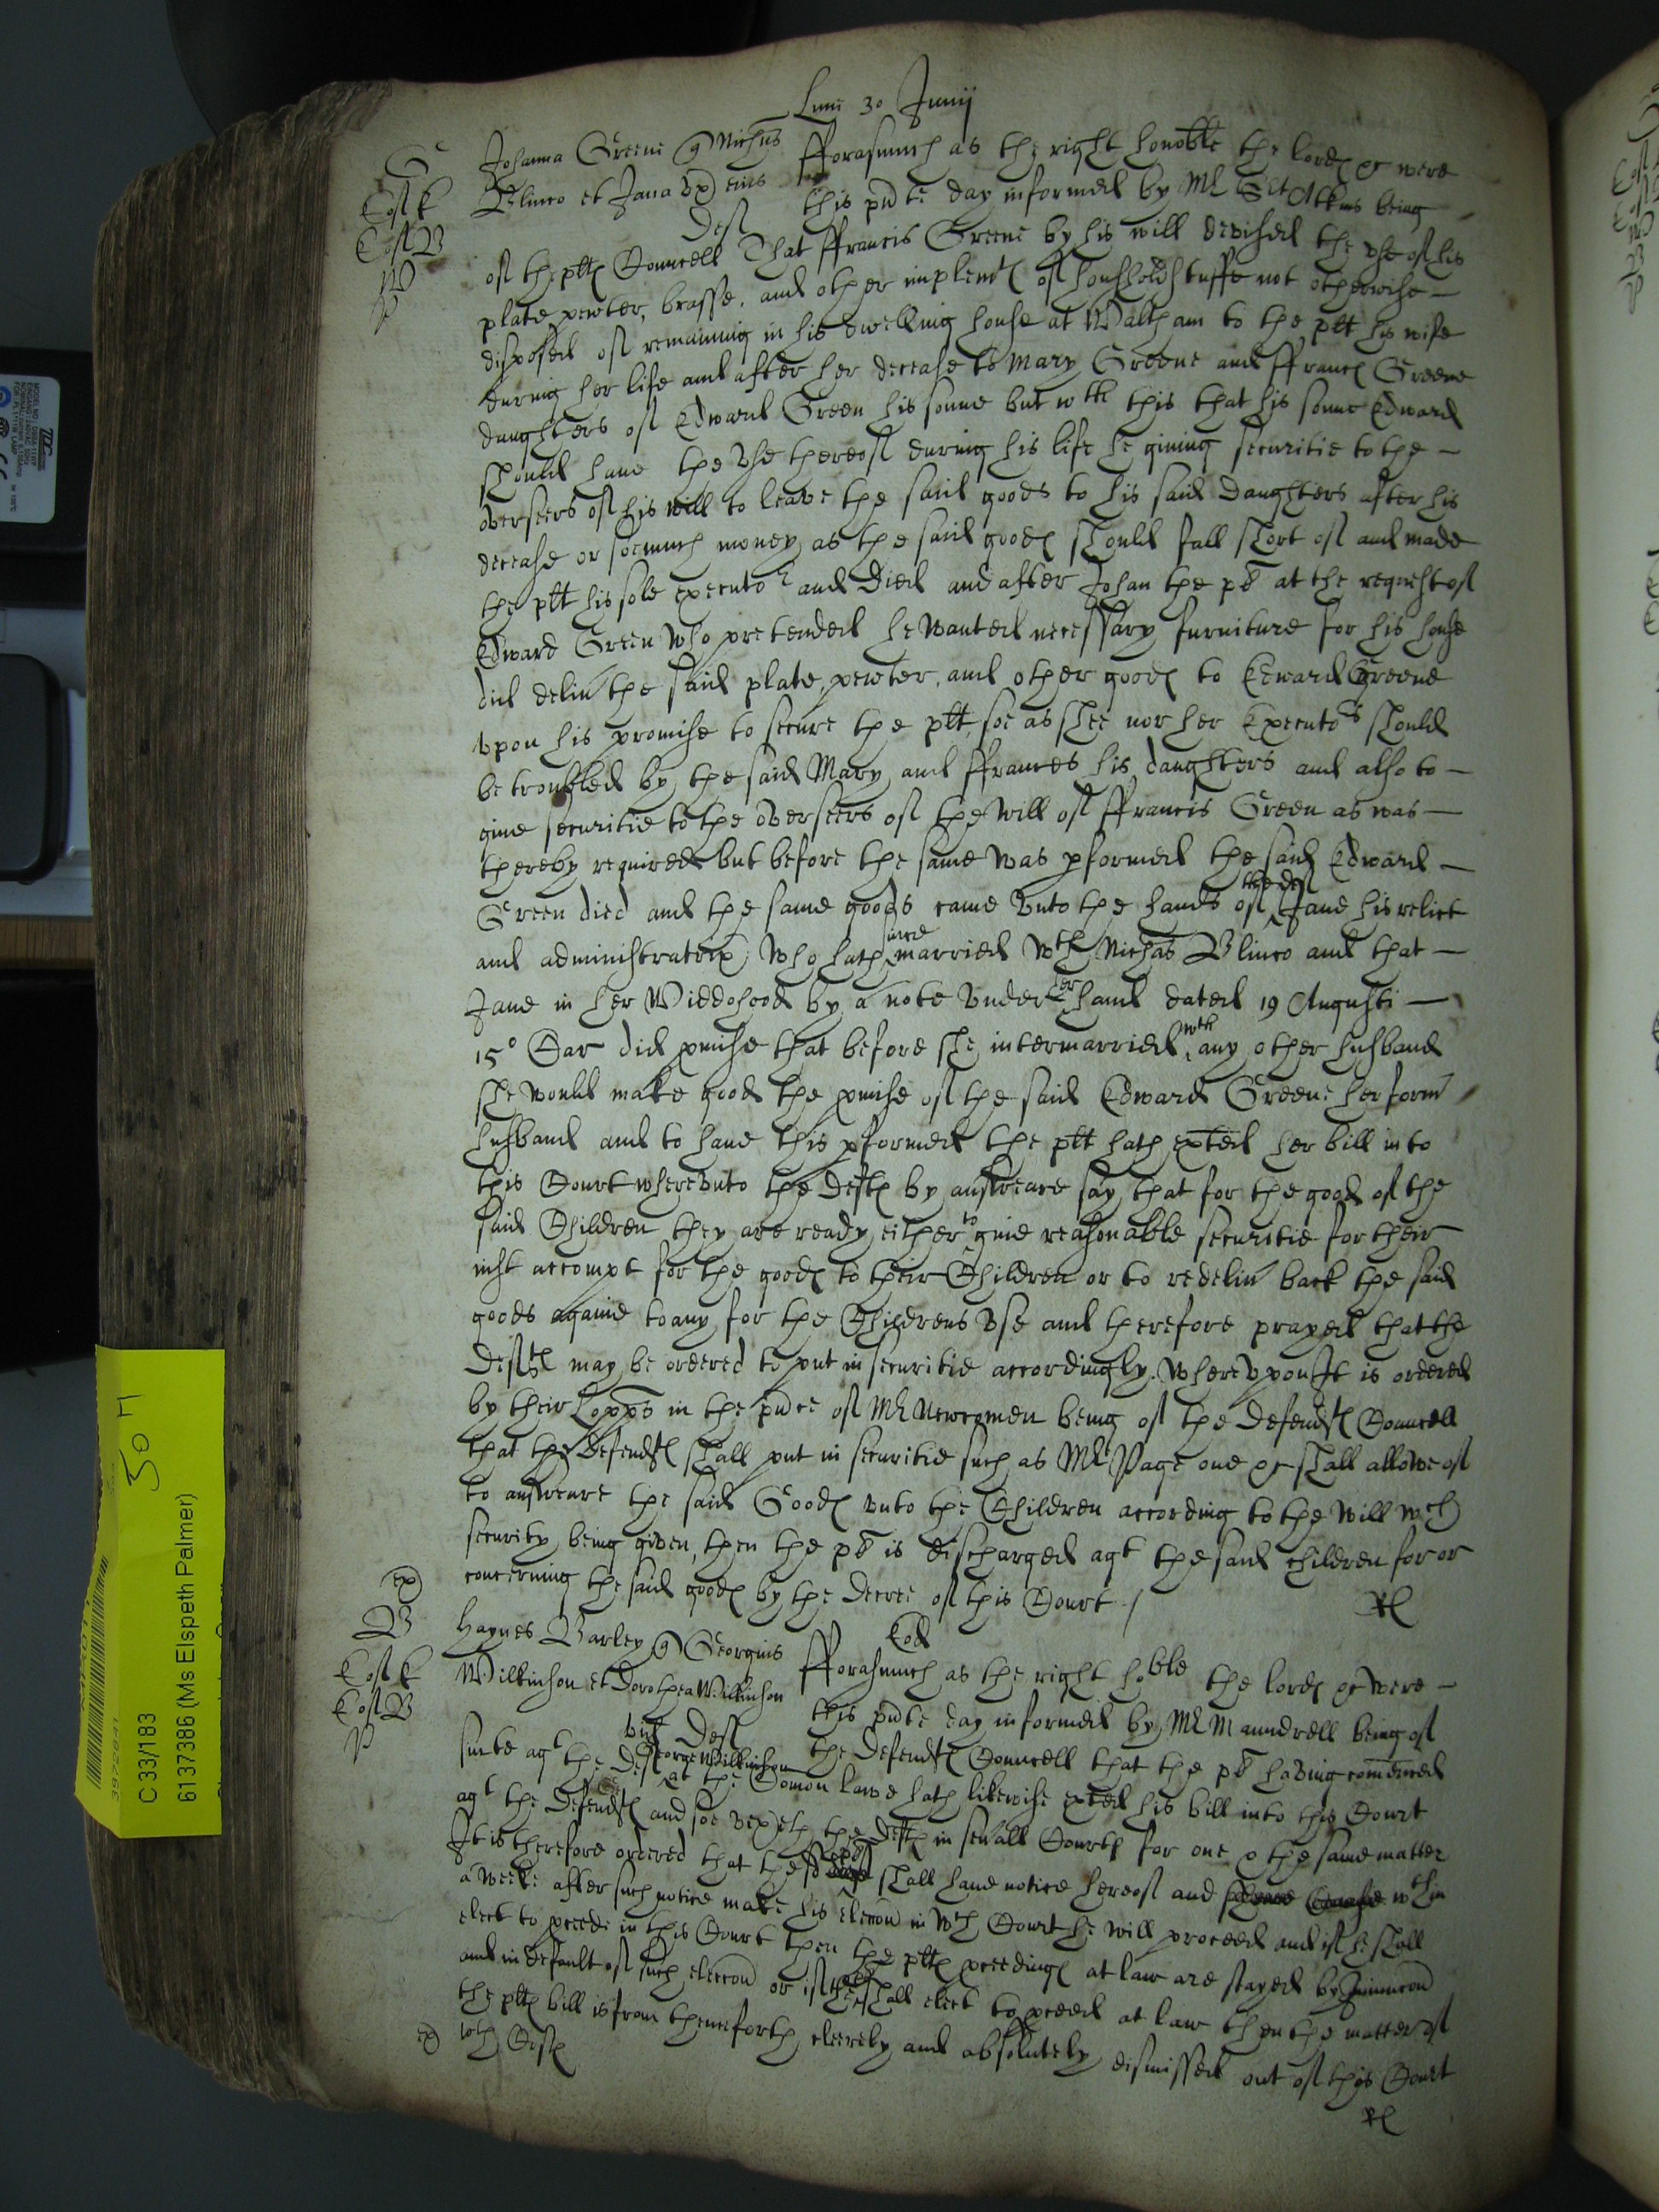 Lune 30 Junij
G
Cost k
Cost B
W
P
Johanna Greene q Nichūs
Blinco et Jana vx eius
Deft
fforasmuch as the right honoble the lordes &c were
this pñte day informed by Mr Att Atkins being
of the plts Councell That ffrancis Greene by his will devised the vse of his
plate pewter, brasse, and other implemts of houshold stuffe not otherwise –
disposed of remaining in his dwelling house at Waltham to the plt his wife
during her life and after her decease to Mary Greene and ffrancs Greene
daughters of Edward Green his sonne but wth this that his sonne Edward
should haue the vse thereof during his life he giuing securitie to the –
overseers of his will to leave the said goods to his said daughters after his
decease or soemuch money as the said goods should fall short of and made
the plt his sole executor and died and after Johan the pt at the request of
Edward Green who pretended he wanted necessary furniture for his house
did deliū the said plate, pewter, and other goods to Edward Greene
vpon his promise to secure the plt, soe as shee nor her Executors should
be troubled by the said Mary and ffrances his daughters and also to –
giue securitie to the overseers of the will of ffrancis Green as was –
thereby required but before the same was pformed the said Edward –
Green died and the same goods came vnto the hands of the deft Jane his relict
and administratrix who hath since married wth Nichās Blinco and that –
Jane in her Widdohood by a note vnder her hand dated 19 Augusti –
15° Car did pmise that before she intermarried wth any other husband
she would make good the pmise of the said Edward Greene her form̄
husband and to haue this pformed the plt hath exted her bill into
this Court wherevnto the Defts by answeare say that for the good of the
said Children they are ready either to giue reasonable securitie for their
iust accompt for the goods to their Children or to redeliū back the said
goods againe to any for the Childrens vse and therefore prayed that the
Defts may be ordered to put in securitie accordingly. Wherevpon It is ordered
by their Lopps in the pñce of Mr Newcomen being of the Defendts Councell
that the Defendts shall put in securitie such as Mr Page one &c shall allowe of
to answeare the said Goods vnto the Children according to the will wch
security being given, then the pt is discharged agt the said children for or
concerning the said goods by the decree of this Court /
ex
B
Cost k
Cost B
P
Haynes Barley q Georgius
Wilkinson et Dorothea Wilkinson
vid Deft
Eod
fforasmuch as the right hoble the lordes &c were –
this pñte day informed by Mr Maundrell being of
the Defendts Councell that the pt having com̄enced
suite agt the Deft George Wilkinson at the Com̄on lawe hath likewise exted his bill into this Court
agt the Defendts and soe vexeth the Defts in sevall Courts for one & the same matter
It is therefore ordered that the sd pt shall haue notice hereof and wthin
a weeke after such notice make his elecc̄on in wch Court he will proceed and if he shall
elect to pceede in this Court then the plts pceedings at law are stayed by Iniuncc̄on
and in default of such elecc̄on or if he shall elect to pceed at law then the matter of
the plts bill is from thenceforth cleerely and absolutely dismissed out of this Court
ex
wth Costs
C 33/183
6137386 (Ms Elspeth Palmer)